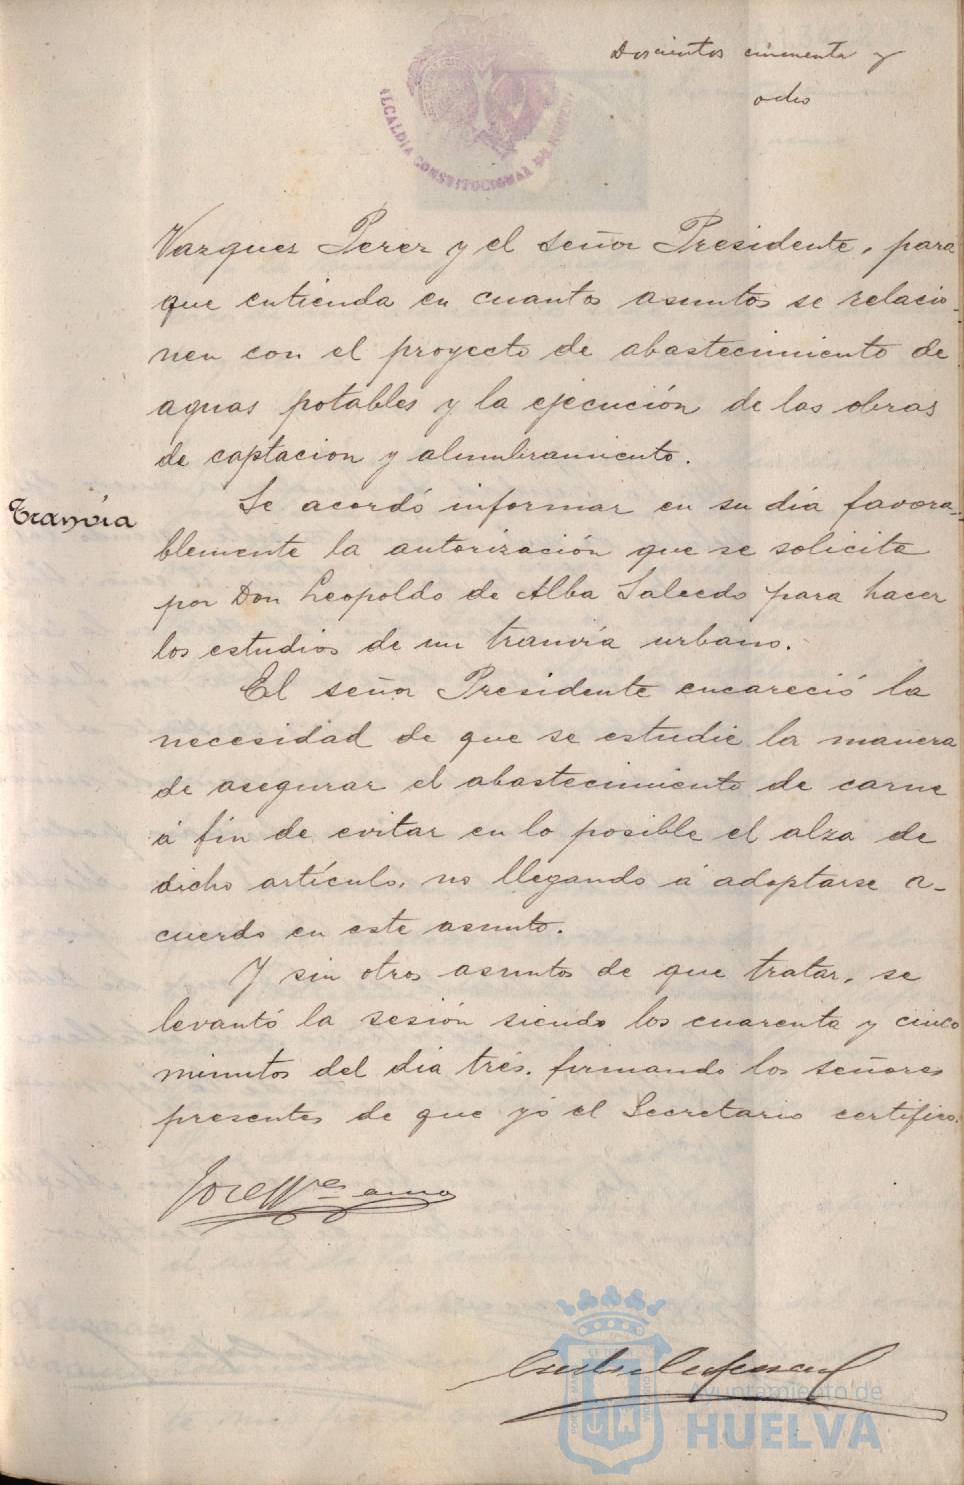 Doscientos cincuenta y
ocho
ALCALDIA CONSTITUCIONAL DE HUELVA
Vazquez Perez y el señor Presidente, para
que entienda en cuantos asuntos se relacio-
nen con el proyecto de abastecimiento de
aguas potables y la ejecución de las obras
de captacion y alumbramiento.
Tranvía
Se acordó informar en su dia favora-
blemente la autorización que se solicita
por Don Leopoldo de Alba Salcedo para hacer
los estudios de un tranvía urbano.
El señor Presidente encareció la
necesidad de que se estudie la manera
de asegurar el abastecimiento de carne
á fin de evitar en lo posible el alza de
dicho artículo, no llegando á adoptarse a-
cuerdo en este asunto.
Y sin otros asuntos de que tratar, se
levantó la sesión siendo los cuarenta y cinco
minutos del dia trés, firmando los señores
presentes de que yó el Secretario certifico.
Ayuntamiento de
HUELVA